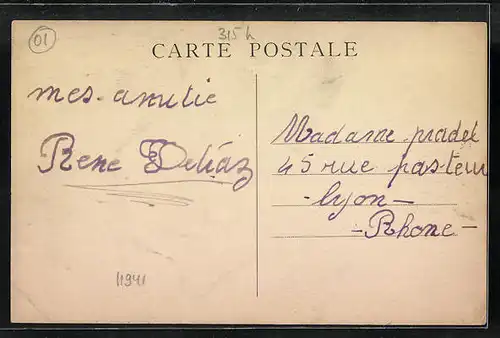 01
315 h
CARTE POSTALE
mes amitie
Rene
Madame pradel
45 rue pasteur
- lyon -
- Rhone -
11941